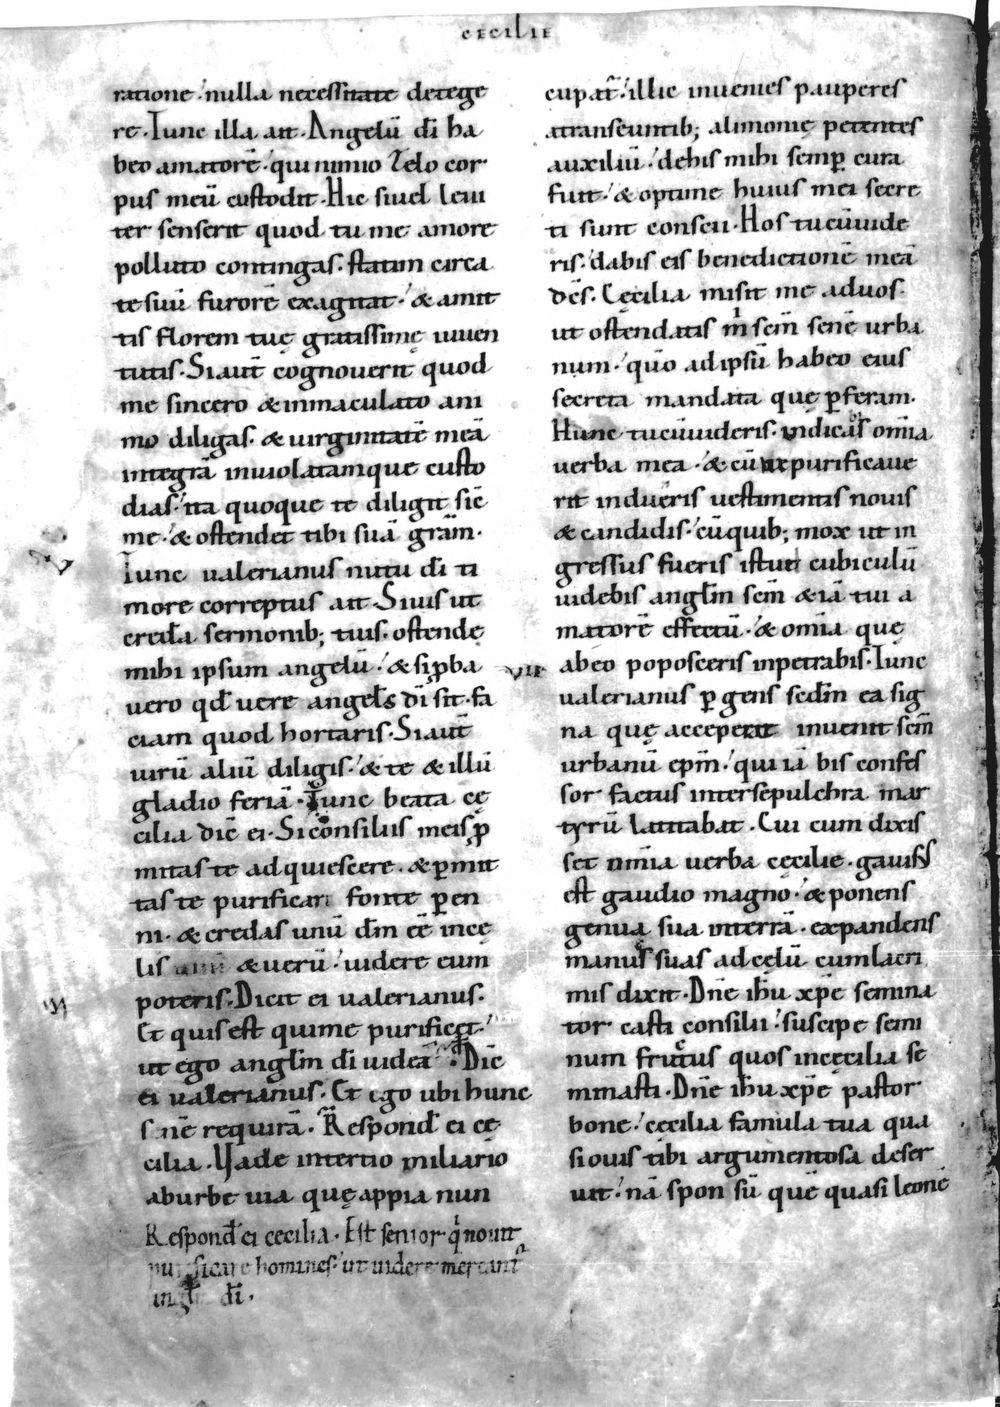 CECILIE
ratione nulla necessitate detege
re. Tunc illa ait. Angelū dī ha
beo amatorē. qui nimio zelo cor
pus meū custodit. Hic si uel leui
ter senserit quod tu me amore
polluto contingas. statim circa
te suū furorē exagitat. & amit
tis florem tuę gratissimę iuuen
tutis. Si autē cognouerit quod
me sincero & inmaculato ani
mo diligas. & uirginitatē meā
integrā inuiolatamque custo
dias. ita quoque te diligit sic̄
me. & ostendet tibi suā grām.
Tunc ualerianus nutu dī ti
more correptus ait. Si uis ut
credā sermonib; tuis. ostende
mihi ipsum angelū. & si ꝓba
uero qd̄ uere angelꝰ dī sit. fa
ciam quod hortaris. Si autē
uirū aliū diligis. & te & illū
gladio feriā. Tunc beata cę
cilia dic̄ ei. Si consiliis meis ꝓ
mittas te adquiescere. & ꝑmit
tas te purificari fonte ꝑen
ni. & credas unū dm̄ ēē in cę
lis & uerū. uidere eum
poteris. Dicit ei ualerianus.
Et quis est qui me purificet.
ut ego angl̄m dī uideā. Dic̄
ei ualerianus. Et ego ubi hunc
senē requirā. Respond̄ ei ce
cilia. Vade in tertio miliario
ab urbe uia quę appia nun
Respond̄ ei cecilia. Est senior q̇ nouit
purificare homines. ut uidere mereant᷑
angl̄m dī.
cupat᷑. illic inuenies pauperes
a transeuntib; alimonię petentes
auxiliū. de his mihi semꝑ cura
fuit. & optime huius mei secre
ti sunt conscii. Hos tu cū uide
ris. dabis eis benedictionē meā
dc̄s. Cęcilia misit me ad uos.
ut ostendatis ṁ scm̄ senē urba
num. quō ad ipsū habeo eius
secreta mandata quę ꝑferam.
Hunc tu cū uideris. indica ei omīa
uerba mea. & cū te purificaue
rit indueris uestimentis nouis
& candidis. cū quib; mox ut in
gressus fueris istud cubiculū
uidebis angl̄m scm̄ & iā tui a
matorē effectū. & omīa quę
VII
ab eo poposceris inpetrabis. Tunc
ualerianus ꝑgens scd̄m ea sig
na quę acceperat inuenit scm̄
urbanū epm̄. qui iā bis confes
sor factus inter sepulchra mar
tyrū latitabat. Cui cum dixis
set omīa uerba cęcilie. gauisꝰ
est gaudio magno. & ponens
genua sua in terrā. expandens
manus suas ad cęlū cum lacri
mis dixit. Dn̄e ih̄u xp̄e semina
tor casti consilii. suscipe semi
num fructus quos in cęcilia se
minasti. Dn̄e ih̄u xp̄e pastor
bone. cecilia famula tua qua
si ouis tibi argumentosa deser
uit. nā sponsū quē quasi leonē